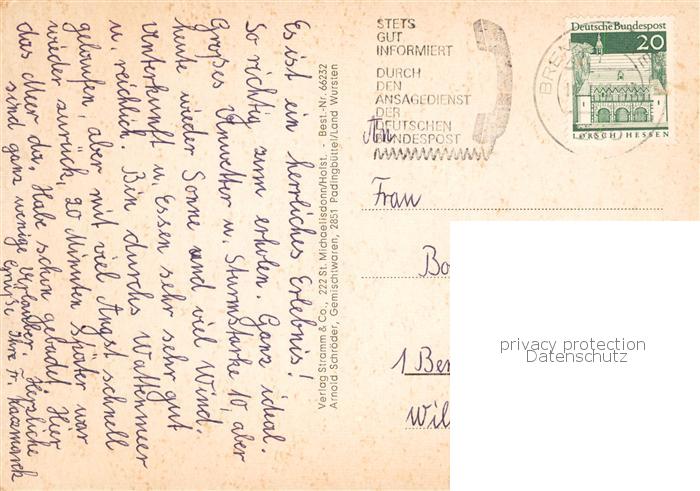 Es ist ein herrliches Erlebnis!
So richtig zum erholen. Ganz ideal.
Großes Unwetter u. Sturmstärke 10, aber
heute wieder Sonne und viel Wind.
Unterkunft u. Essen sehr sehr gut
u. reichlich. Bin durchs Wattenmeer
gelaufen, aber mit viel Angst schnell
wieder zurück, 20 Minuten später war
das Meer da. Habe schon gebadet. Hier
sind ganz wenige Urlauber. Herzliche
Grüße Ihre Fr. Kaczmarek
Verlag Stramm & Co., 222 St. Michaelisdonn/Holst. · Best.-Nr. 66232
Arnold Schröder, Gemischtwaren, 2851 Padingbüttel/Land Wursten
STETS
GUT
INFORMIERT
DURCH
DEN
ANSAGEDIENST
DER
DEUTSCHEN
BUNDESPOST
BREM
Deutsche Bundespost
20
LORSCH/HESSEN
An
Frau
Bo
1 Ber
Wil
privacy protection
Datenschutz